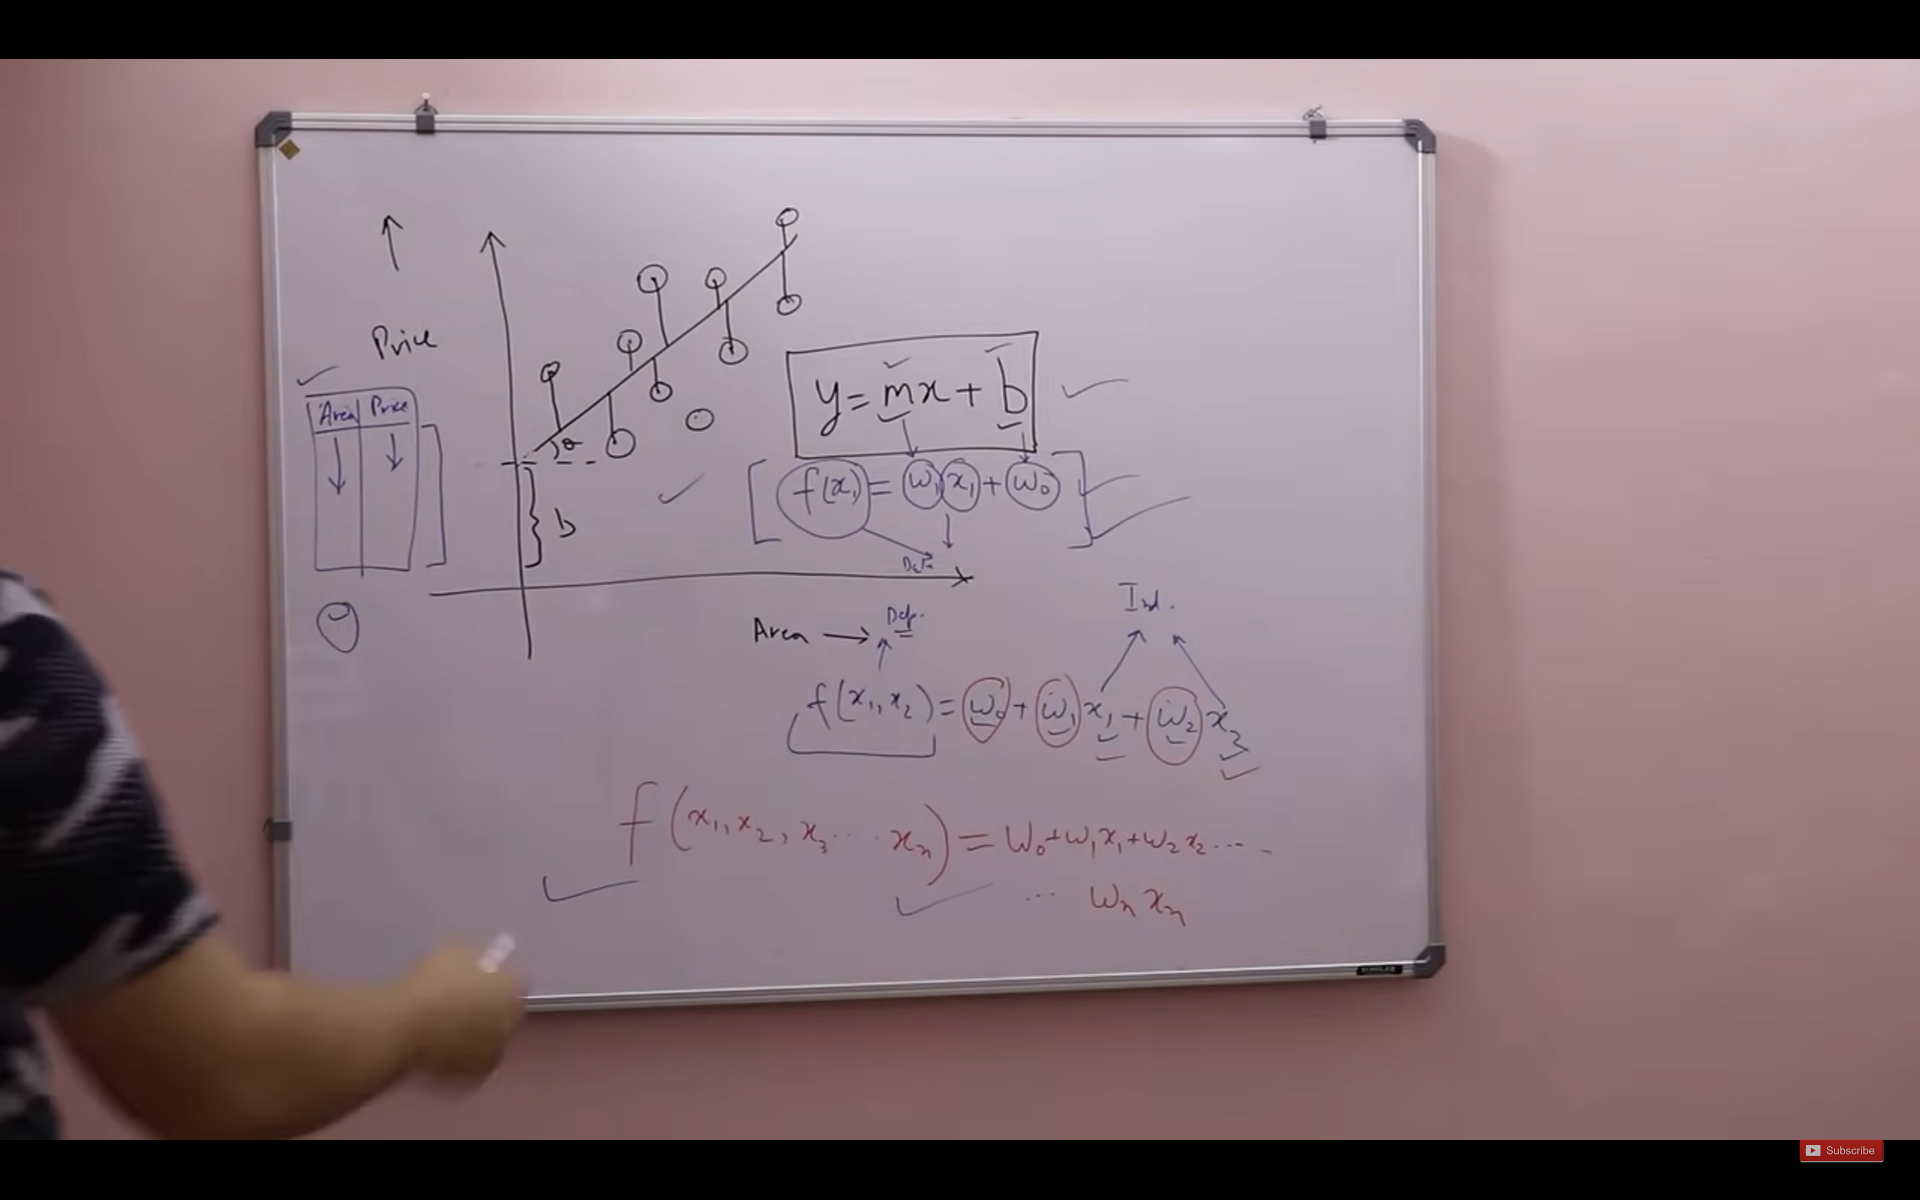 Price
Area Price
θ
b
y = mx + b
f(x₁) = w₁x₁ + w₀
Area → Dep.
Ind.
f(x₁, x₂) = w₀ + w₁x₁ + w₂x₃
f(x₁, x₂, x₃ ... xₙ) = w₀ + w₁x₁ + w₂x₂ ....
... wₙxₙ
Subscribe